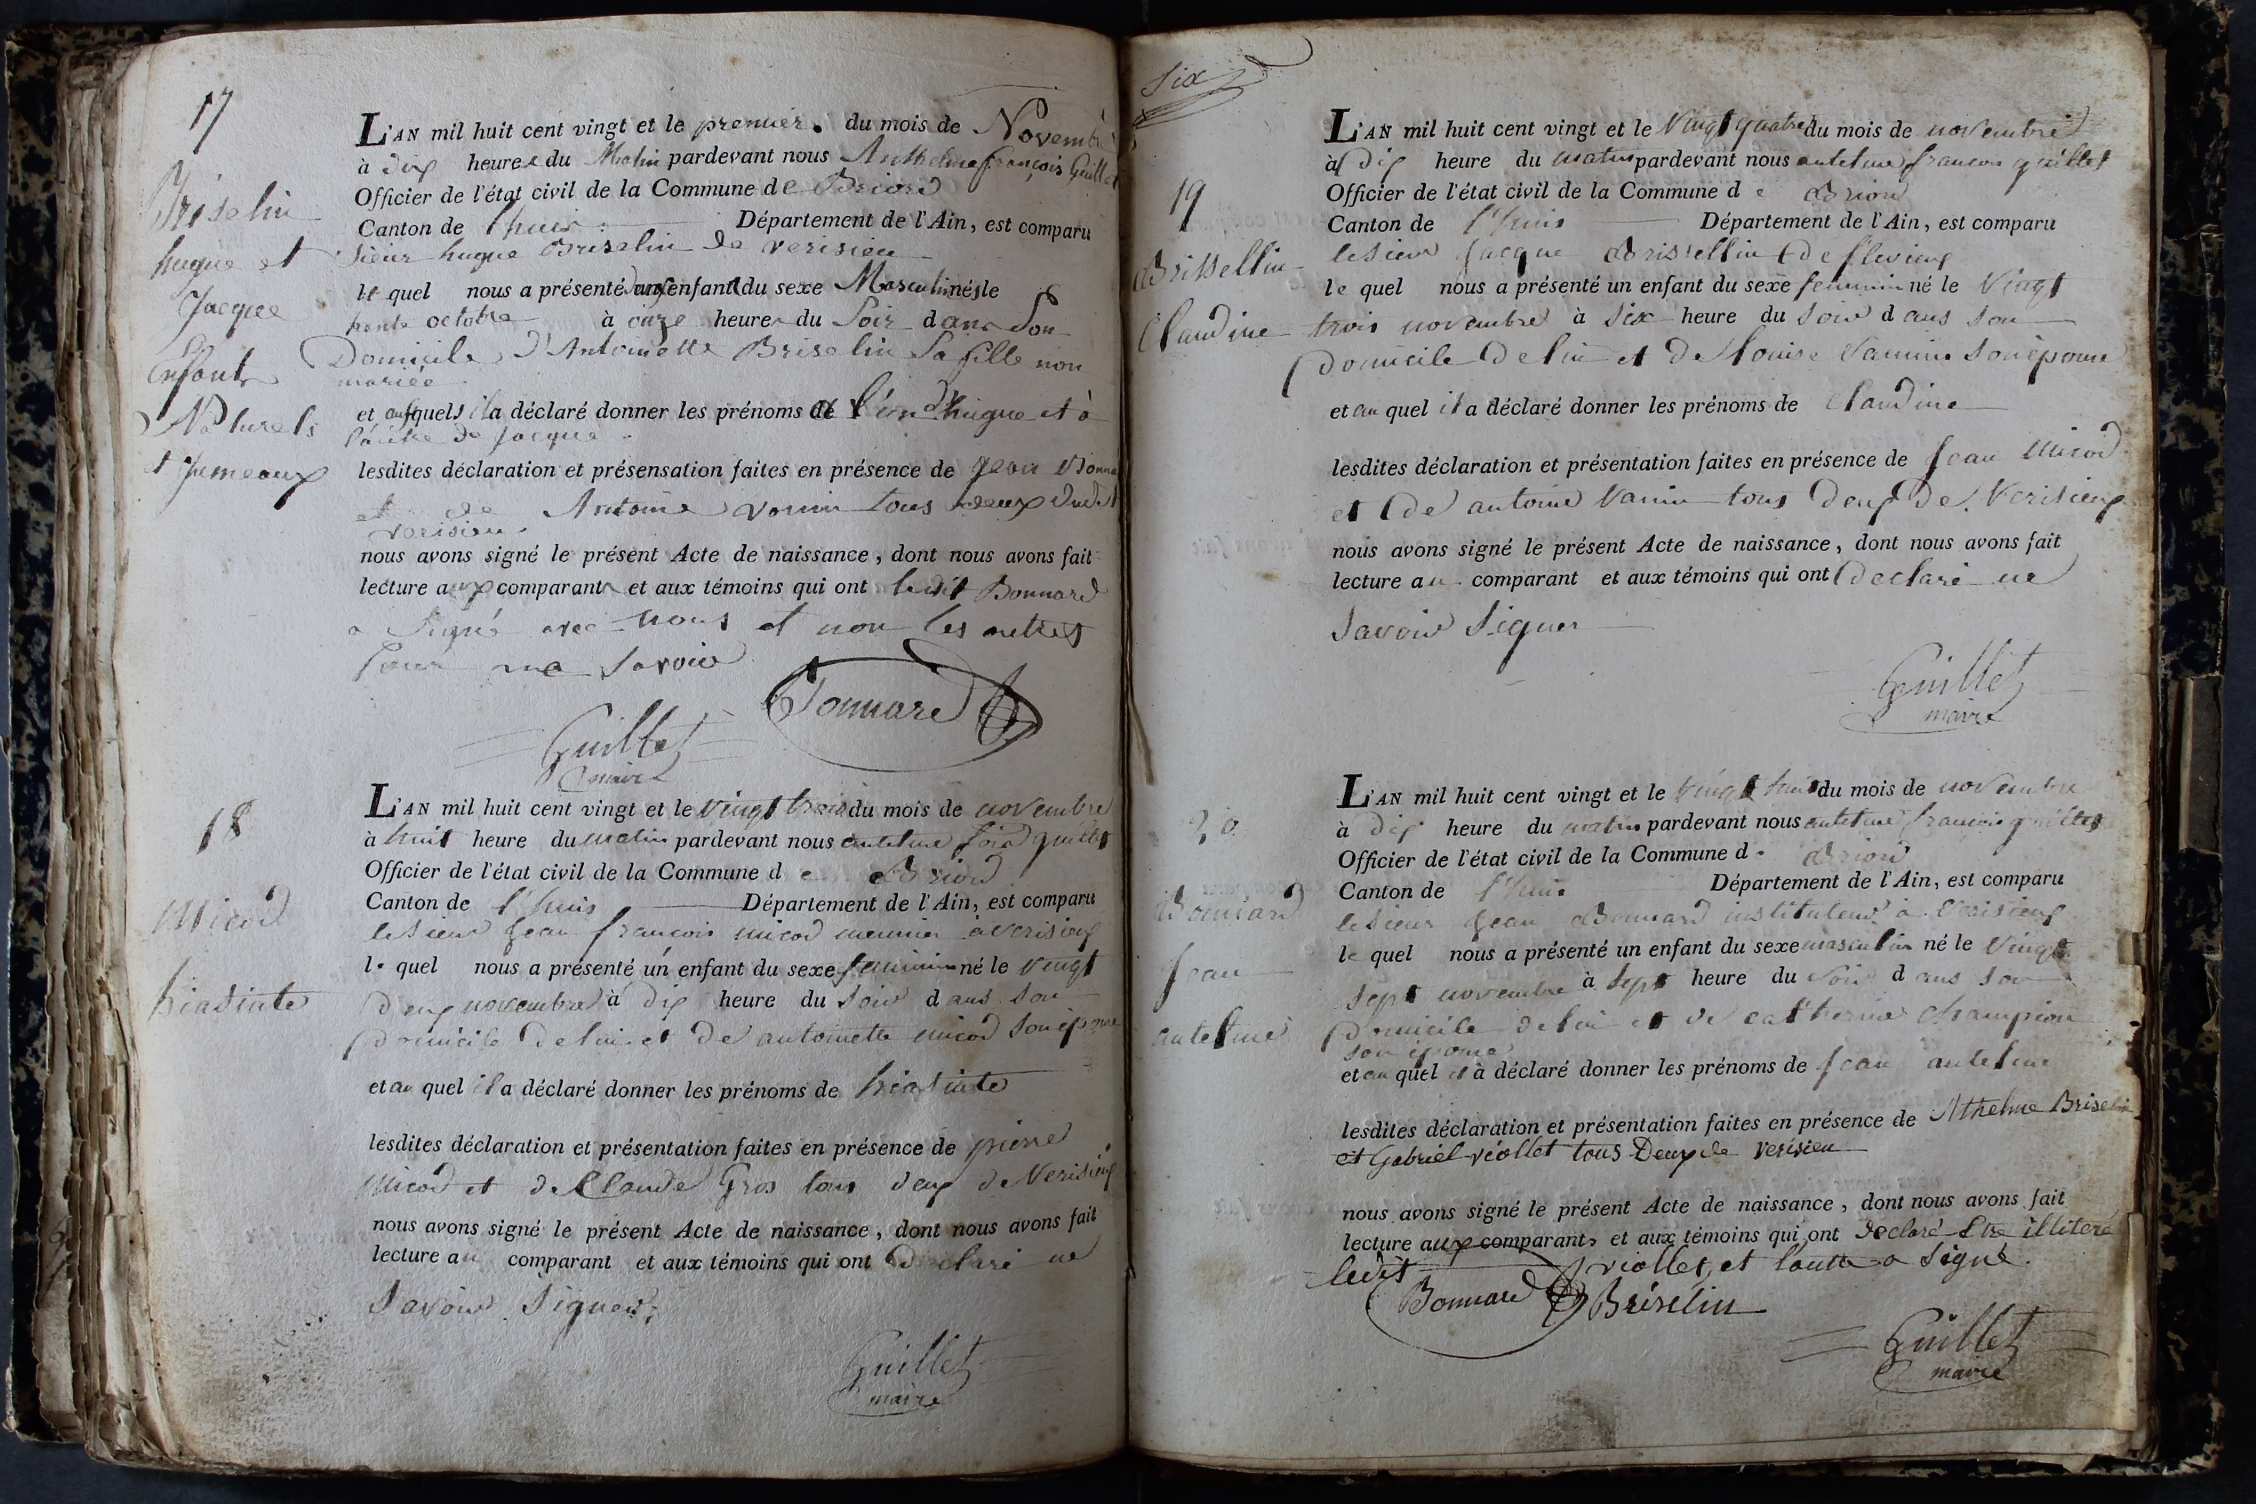 17
Briselin
hugue et
Jacque
Enfants
Naturels
et Jumeaux
L'AN mil huit cent vingt et le premier du mois de Novembre
à dix heures du Matin pardevant nous Anthelme françois Guillet
Officier de l'état civil de la Commune de Briord
Canton de l'huis Département de l'Ain, est comparu
Sieur hugue Briselin de verisieu
le quel nous a présenté deux enfant du sexe Masculin nés le
trente octobre à onze heures du Soir dans Son
Domicile d'Antoinette Briselin Sa fille non
mariée
et auxquels il a déclaré donner les prénoms à l'un d'hugue et à
l'autre de Jacque
lesdites déclaration et présensation faites en présence de Jean Bonnard
et de Antoine vanin tous deux dudit
verisieu
nous avons signé le présent Acte de naissance, dont nous avons fait
lecture aux comparants et aux témoins qui ont ledit Bonnard
a Signé avec nous et non les autres
pour ne Savoir
Bonnard
Guillet
maire
18
Micod
hiasinte
L'AN mil huit cent vingt et le vingt trois du mois de novembre
à huit heure du matin pardevant nous antelme guillet
Officier de l'état civil de la Commune de Briord
Canton de l'huis Département de l'Ain, est comparu
le Sieur Jean françois micod meunier à verisieux
le quel nous a présenté un enfant du sexe feminin né le vingt
deux novembre à dix heure du Soir dans Son
Domicile de lui et de antoinette micod Son épouse
et au quel il a déclaré donner les prénoms de hiasinte
lesdites déclaration et présentation faites en présence de pierre
Micod et de Claude Gros tous deux de Verisieux
nous avons signé le présent Acte de naissance, dont nous avons fait
lecture au comparant et aux témoins qui ont declaré ne
Savoir Signer
Guillet
maire
Six
19
Brissellin
Claudine
L'AN mil huit cent vingt et le Vingt quatre du mois de novembre
à dix heure du matin pardevant nous antelme francois guillet
Officier de l'état civil de la Commune de Briord
Canton de l'huis Département de l'Ain, est comparu
le Sieur Jacque Brissellin de flevieux
le quel nous a présenté un enfant du sexe feminin né le Vingt
trois novembre à Six heure du Soir dans Son
Domicile de lui et de louise Vannin Son épouse
et au quel il a déclaré donner les prénoms de Claudine
lesdites déclaration et présentation faites en présence de Jean Micod
et de antoine Vanin tous deux de Verisieux
nous avons signé le présent Acte de naissance, dont nous avons fait
lecture au comparant et aux témoins qui ont declaré ne
Savoir Signer
Guillet
maire
20
Bonnard
Jean
antelme
L'AN mil huit cent vingt et le Vingt huit du mois de novembre
à dix heure du matin pardevant nous antelme francois guillet
Officier de l'état civil de la Commune d. Briord
Canton de l'huis Département de l'Ain, est comparu
le Sieur Jean Bonnard instituteur à Verisieux
le quel nous a présenté un enfant du sexe masculin né le Vingt
Sept novembre à Sept heure du Soir dans Son
Domicile de lui et de catherine Champion
Son épouse
et au quel il à déclaré donner les prénoms de Jean antelme
lesdites déclaration et présentation faites en présence de Athelme Briselin
et Gabriel viollet tous Deux de verisieu
nous avons signé le présent Acte de naissance, dont nous avons fait
lecture aux comparants et aux témoins qui ont declaré Etre illiteré
ledit viollet, et l'autre a Signé
Bonnard Briselin
Guillet
maire